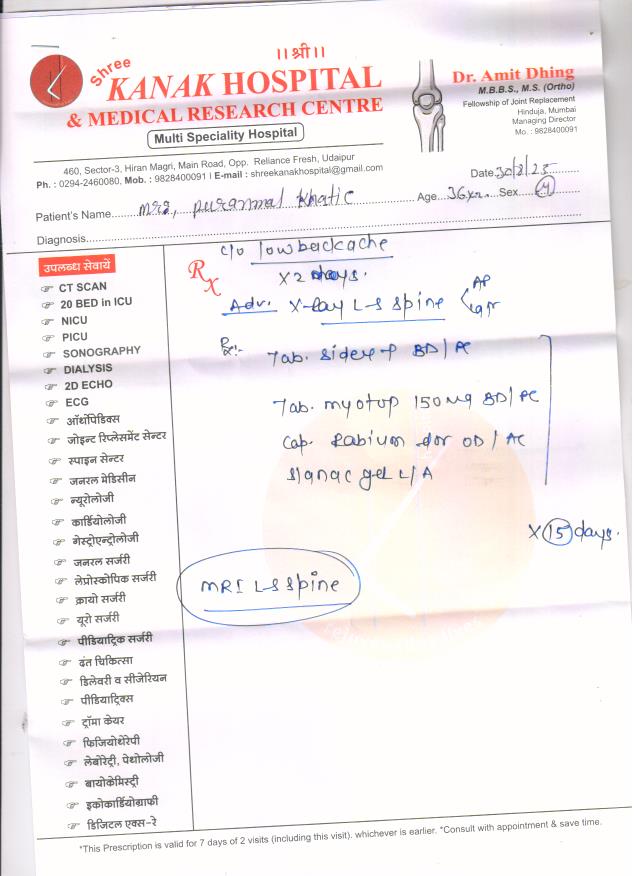 ।।श्री।।
Shree
KANAK HOSPITAL
& MEDICAL RESEARCH CENTRE
Multi Speciality Hospital
460, Sector-3, Hiran Magri, Main Road, Opp. Reliance Fresh, Udaipur
Ph. : 0294-2460080, Mob. : 9828400091 I E-mail : shreekanakhospital@gmail.com
Dr. Amit Dhing
M.B.B.S., M.S. (Ortho)
Fellowship of Joint Replacement
Hinduja, Mumbai
Managing Director
Mo. : 9828400091
Date 30/8/25
Patient's Name Mrs, puranmal Khatic Age 36 yrs. Sex
Diagnosis
उपलब्ध सेवायें
CT SCAN
20 BED in ICU
NICU
PICU
SONOGRAPHY
DIALYSIS
2D ECHO
ECG
ऑर्थोपिडिक्स
जोइन्ट रिप्लेसमेंट सेन्टर
स्पाइन सेन्टर
जनरल मेडिसीन
न्यूरोलोजी
कार्डियोलोजी
गेस्ट्रोएन्ट्रोलोजी
जनरल सर्जरी
लेप्रोस्कोपिक सर्जरी
क्रायो सर्जरी
यूरो सर्जरी
पीडियाट्रिक सर्जरी
दंत चिकित्सा
डिलेवरी व सीजेरियन
पीडियाट्रिक्स
ट्रॉमा केयर
फिजियोथेरेपी
लेबोरेट्री, पेथोलोजी
बायोकेमिस्ट्री
इकोकार्डियोग्राफी
डिजिटल एक्स-रे
Rx
c/o low backache
x 2 days.
Adv. X-Ray L-S Spine AP
Tab. BD/PC
Tab. myotop 150mg BD/PC
Cap. Rabium dsr OD/AC
gel L/A
x 15 days.
MRI L-S Spine
*This Prescription is valid for 7 days of 2 visits (including this visit). whichever is earlier. *Consult with appointment & save time.